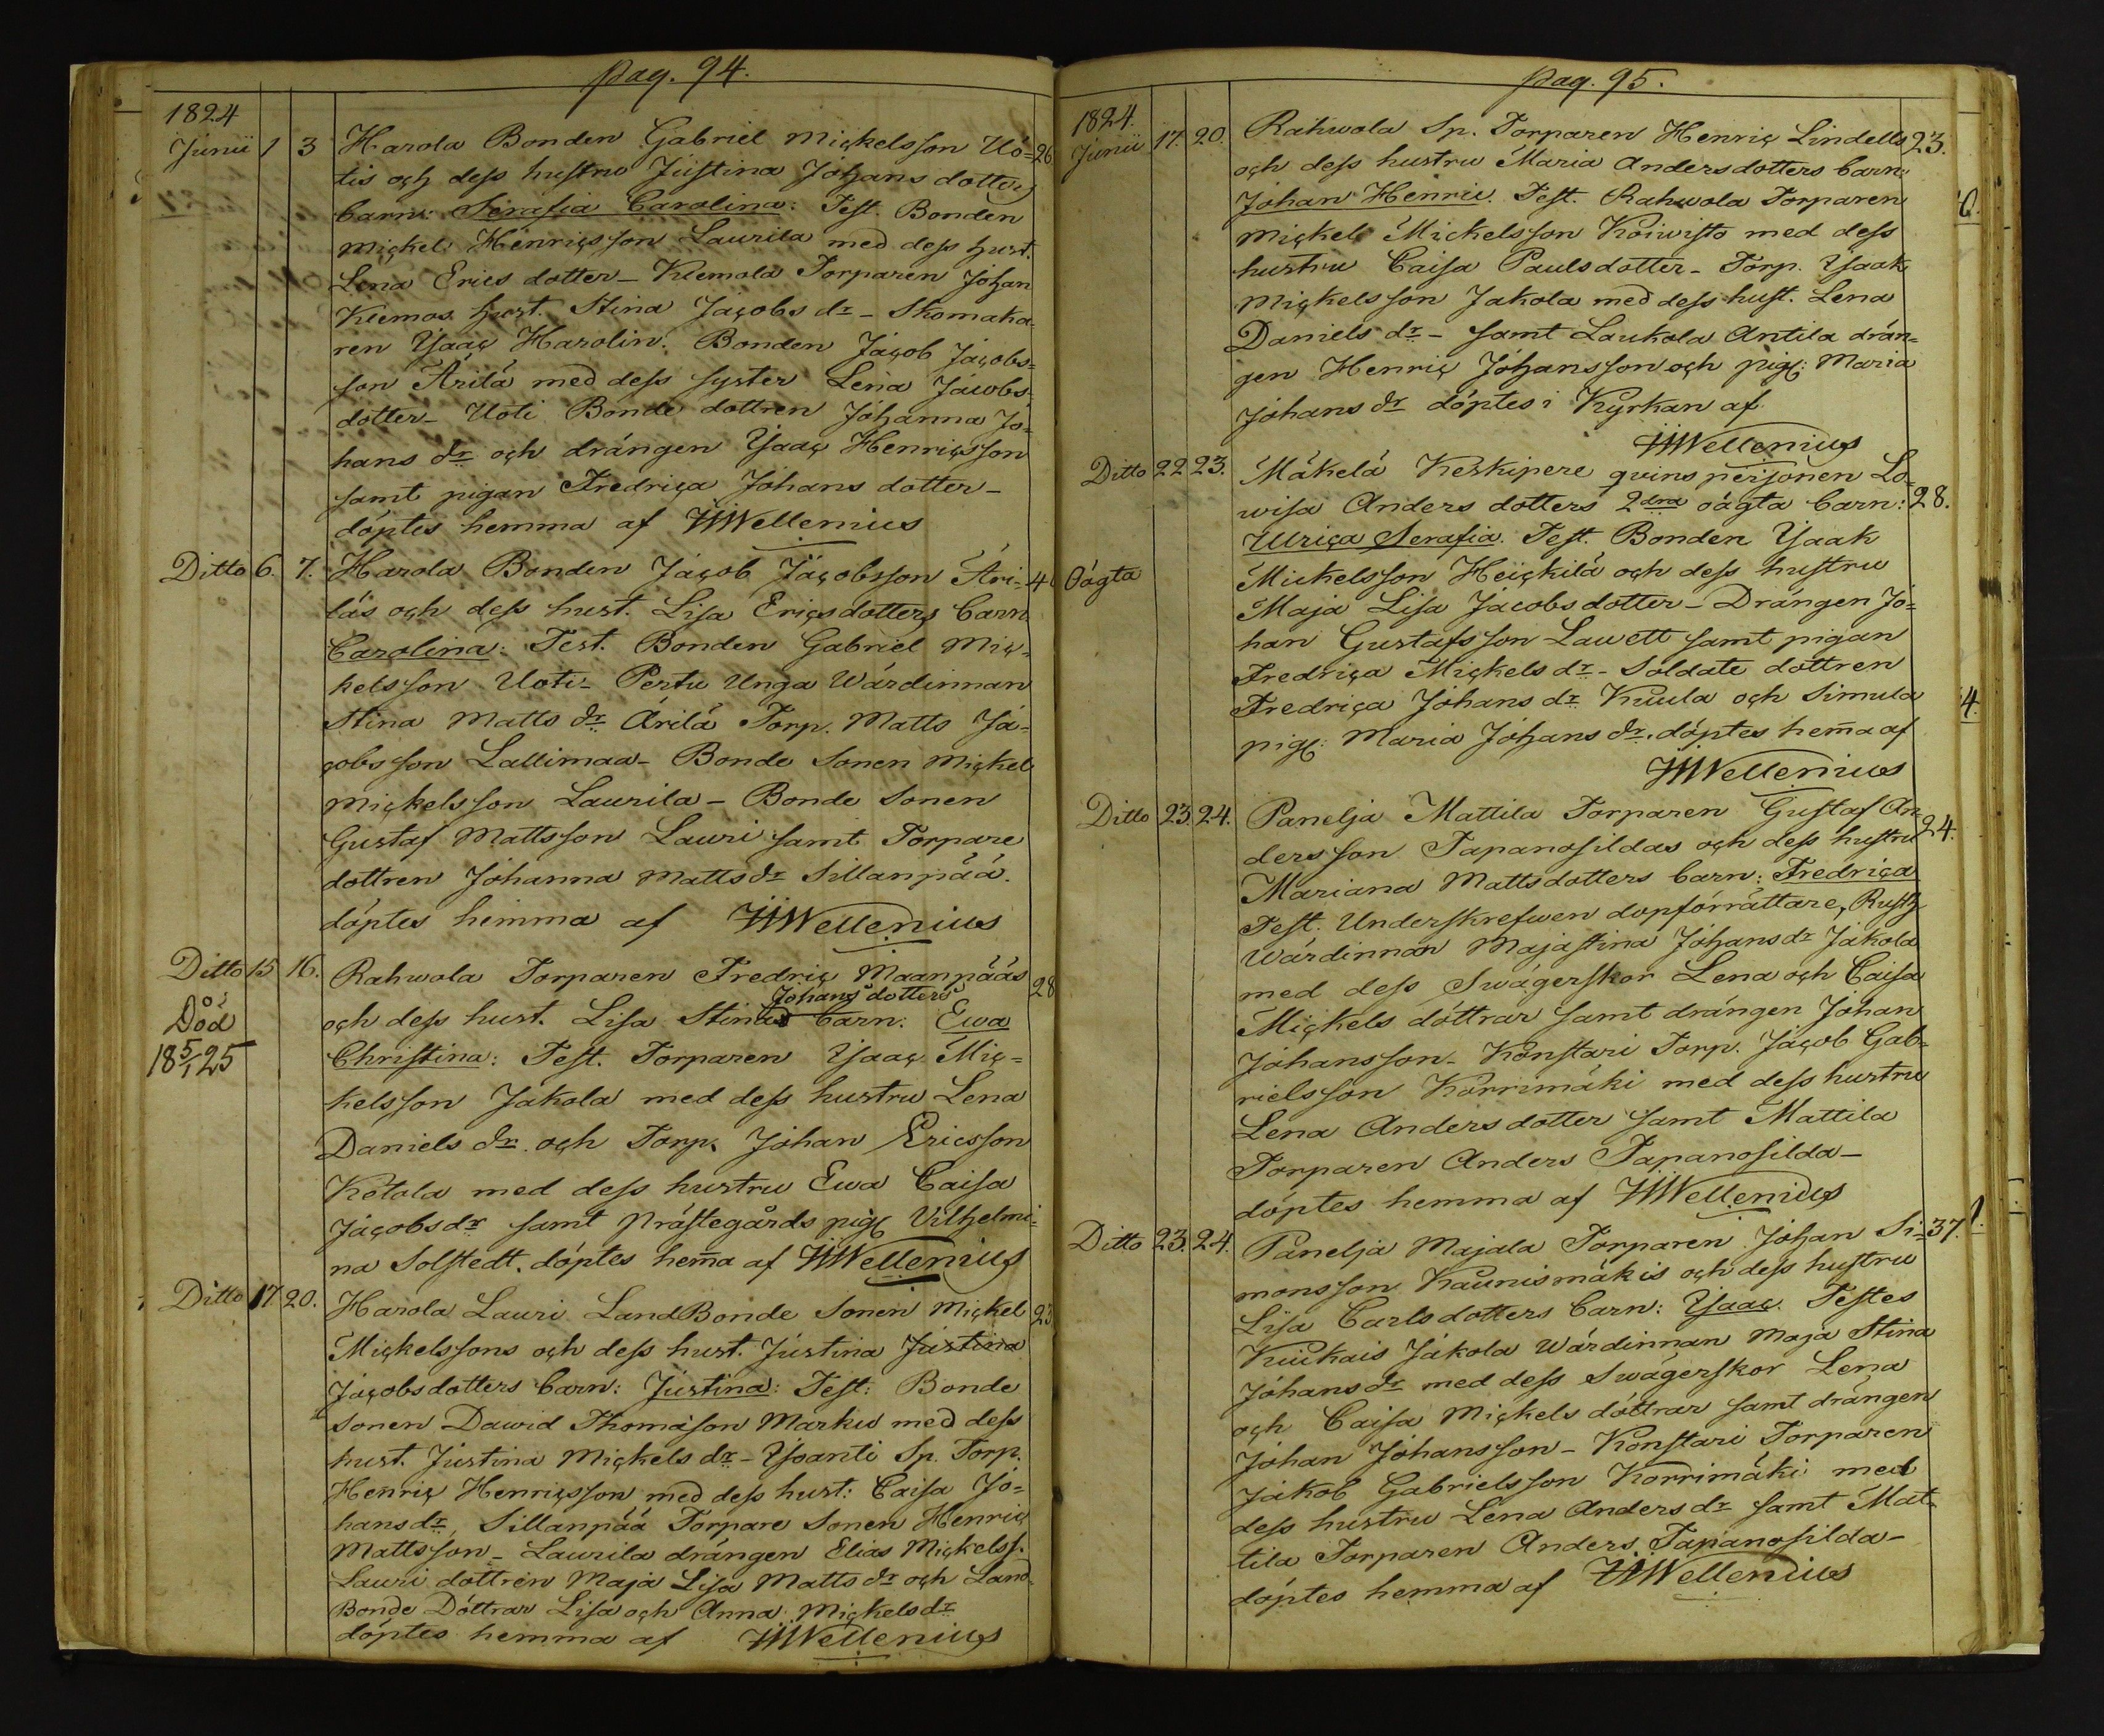 pag. 94.
1824
Junii 1 3 Harola Bonden Gabriel Mickelsson Uo= 26
tis och dess hustru Justina Johans dotters
barn: Serafia Carolina: Test. Bonden
Mickel Henricsson Laurila med dess hust.
Lena Erics dotter – Kiemola Torparen Johan
Kiemos hust. Stina Jacobs dr – Skomaka=
ren Ysaac Harolin. Bonden Jacob Jacobs=
son Ärilä med dess syster Lena Jacobs=
dotter – Uoti Bonde dottren Johanna Jo=
hans dr och drängen Ysaac Henricsson
samt pigan Fredrica Johans dotter –
döptes hemma af Wellenius
Ditto 6. 7. Harola Bonden Jacob Jacobsson Äri= 4
läs och dess hust. Lisa Ericsdotters barn
Carolina: Test. Bonden Gabriel Mic=
kelsson Uoti – Pertu Unga Wärdinnan
Stina Matts dr Ärilä Torp. Matts Ja=
cobsson Lallimaa – Bonde Sonen Mickel
Mickelsson Laurila – Bonde Sonen
Gustaf Mattsson Lauri samt Torpare
dottren Johanna Mattsdr Sillanpää.
döptes hemma af Wellenius
Ditto 15 16. Rahwola Torparen Fredric Maanpääs 28
Johans dotters
och dess hust. Lisa Stinas barn: Ewa
Död
18 5/1 25
Christina: Test. Torparen Ysaac Mic=
kelsson Jakola med dess hustru Lena
Daniels dr. och Torp. Johan Ericsson
Ketola med dess hustru Ewa Caisa
Jacobsdr samt Prästegårds pig Vilhelmi=
na Solstedt. döptes hem̄a af Wellenius
Ditto 17. 20. Harola Lauri LandBonde Sonen Mickel 23
Mickelssons och dess hust. Justina Justina
Jacobsdotters barn: Justina: Test: Bonde
Sonen Dawid Thomasson Marku med dess
hust. Justina Mickels dr – Ysoanti Sp. Torp.
Henric Henricsson med dess hust: Caisa Jo=
hansdr, Sillanpää Torpare Sonen Henric
Mattsson – Laurila drängen Elias Mickelss.
Lauri dottren Maja Lisa Matts dr och Land=
Bonde Döttrar Lisa och Anna Mickelsdr
döptes hemma af Wellenius
pag. 95.
1824.
Junii 17. 20. Rahwola Sp. Torparen Henric Lindells 23.
och dess hustru Maria Andersdotters barn:
Johan Henric. Test. Rahwola Torparen
Mickel Mickelsson Koiwisto med dess
hustru Caisa Paulsdotter – Torp. Ysaak
Mickelsson Jakola med dess hust. Lena
Daniels dr – samt Laukola Antila drän=
gen Henric Johansson och pig: Maria
Johans dr döptes i Kyrkan af
Wellenius
Ditto 22 23. Mäkelä Keskipere qvins personen Lo=
wisa Anders dotters 2dra oägta barn: 28.
Ulrica Serafia. Test. Bonden Ysaak
Oägta
Mickelsson Heickilä och dess hustru
Maja Lisa Jacobsdotter – Drängen Jo=
han Gustafsson Lauett samt pigan
Fredrica Mickels dr – Soldate dottren
Fredrica Johans dr Kuula och Simula
pig: Maria Johans dr. döptes hem̄a af
Wellenius
Ditto 23. 24. Panelja Mattila Torparen Gustaf An= 24.
dersson Tapanosildas och dess hustru
Mariana Mattsdotters barn: Fredrica
Test. Underskrefwen dopförrättare, Rusth
Wärdinnan Majastina Johansdr Jakola
med dess Swägerskor Lena och Caisa
Mickels döttrar samt drängen Johan
Johansson – Konstari Torp. Jacob Gab=
rielsson Korrimäki med dess hustru
Lena Anders dotter samt Mattila
Torparen Anders Tapanosilda –
döptes hemma af Wellenius
Ditto 23. 24. Panelja Majala Torparen Johan Si= 37.
monsson Kaunismäkis och dess hustru
Lisa Carlsdotters barn: Ysaac. Testes
Kiukais Jakola Wärdinnan Maja Stina
Johansdr med dess Swägerskor Lena
och Caisa Mickels döttrar samt drängen
Johan Johansson – Konstari Torparen
Jakob Gabrielsson Korrimäki med
dess hustru Lena Anders dr samt Mat=
tila Torparen Anders Tapanosilda –
döptes hemma af Wellenius